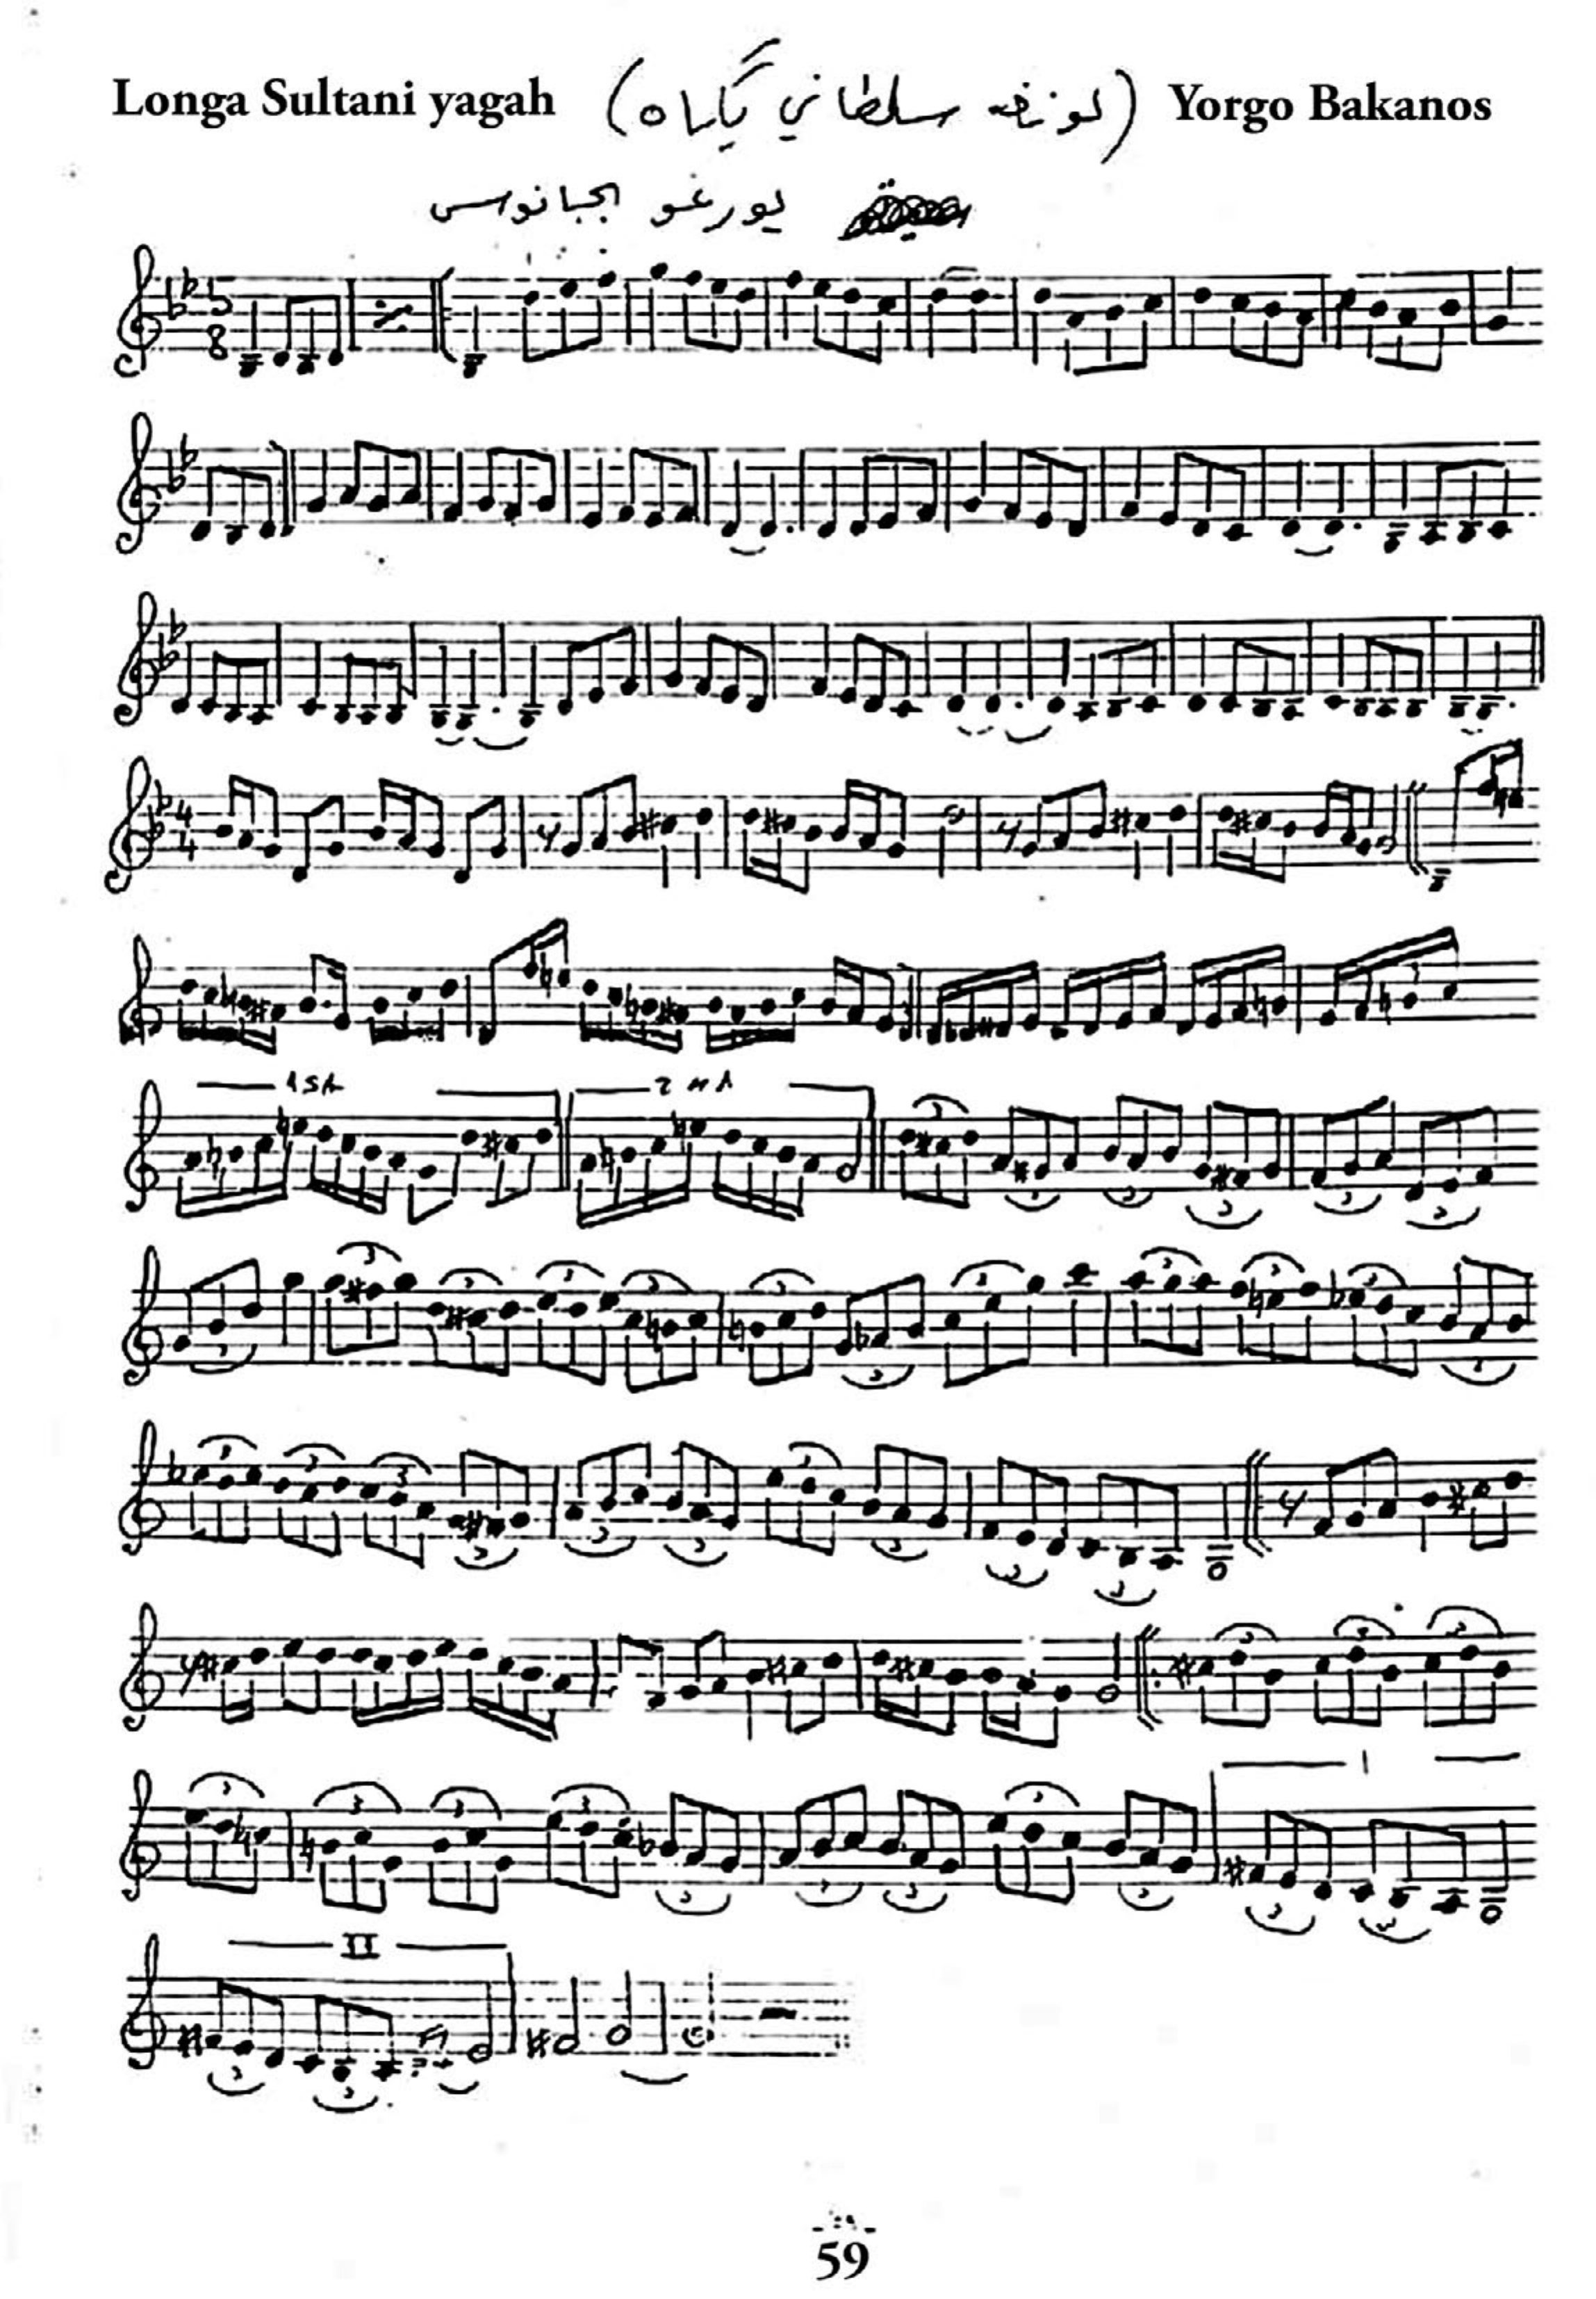 Longa Sultani yagah (لونغه سلطاني يگاه) Yorgo Bakanos
يورغو
5
8
4
4
1 SA
2 NA
I
II
59